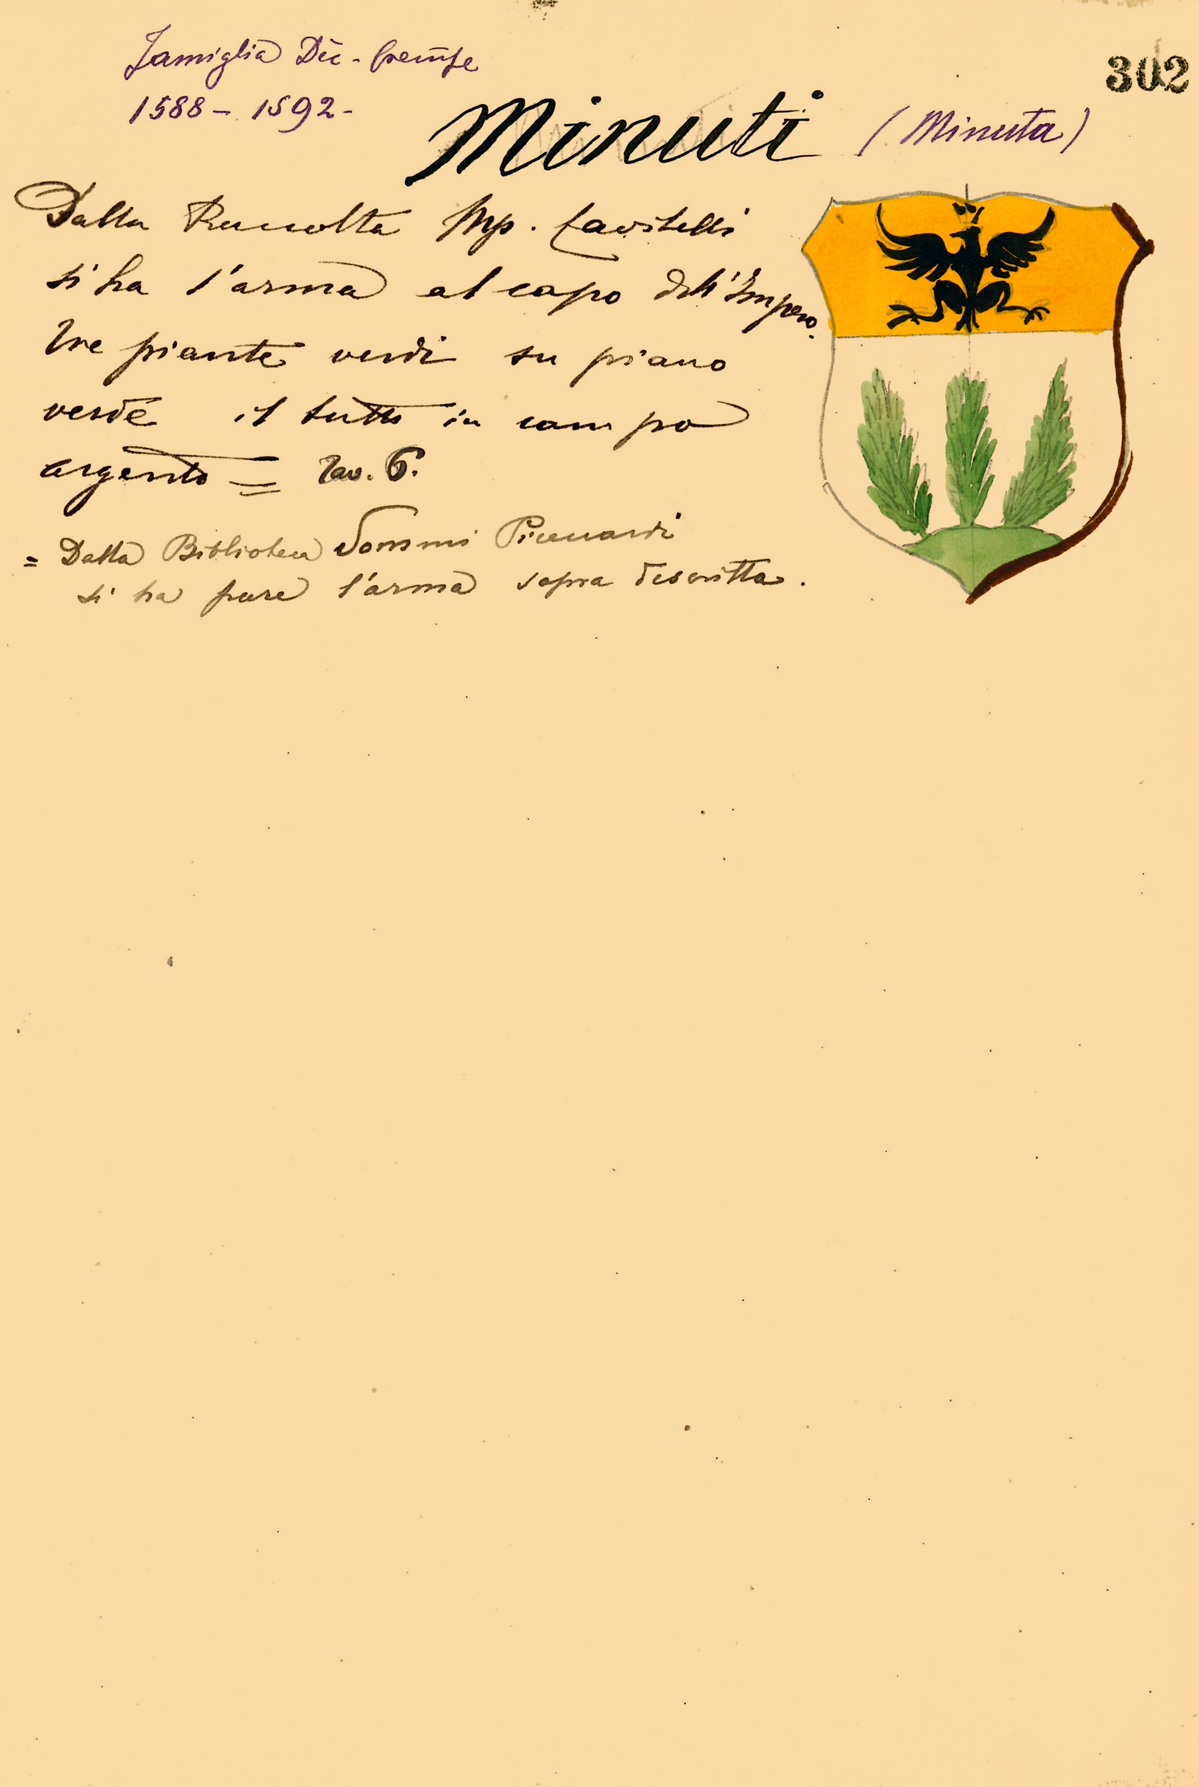 Famiglia Dec. Cremse
1588 - 1592 -
302
Minuti (Minuta)
Dalla Raccolta Mp. Cavitelli
si ha l'arma al capo dell'Impero.
Tre piante verdi su piano
verde il tutto in campo
argento = Tav. 6.
= Dalla Biblioteca Sommi Picenardi
si ha pure l'arma sopra descritta.